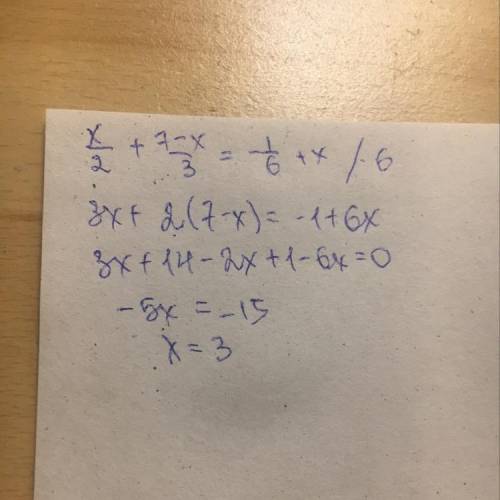 x/2 + 7-x/3 = -1/6 + x /·6
3x + 2(7-x) = -1 + 6x
3x + 14 - 2x + 1 - 6x = 0
-5x = -15
x = 3